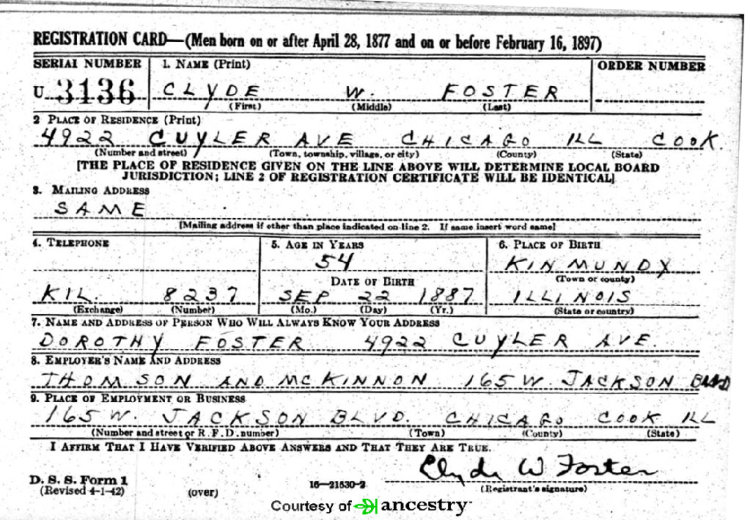 REGISTRATION CARD—(Men born on or after April 28, 1877 and on or before February 16, 1897)
SERIAL NUMBER 1. NAME (Print) ORDER NUMBER
U 3136 CLYDE W. FOSTER
(First) (Middle) (Last)
2 PLACE OF RESIDENCE (Print)
4922 CUYLER AVE CHICAGO ILL COOK
(Number and street) (Town, township, village, or city) (County) (State)
[THE PLACE OF RESIDENCE GIVEN ON THE LINE ABOVE WILL DETERMINE LOCAL BOARD
JURISDICTION; LINE 2 OF REGISTRATION CERTIFICATE WILL BE IDENTICAL]
3. MAILING ADDRESS
SAME
[Mailing address if other than place indicated on line 2. If same insert word same]
4. TELEPHONE 5. AGE IN YEARS 6. PLACE OF BIRTH
54 KINMUNDY
DATE OF BIRTH (Town or county)
KIL 8237 SEP 22 1887 ILLINOIS
(Exchange) (Number) (Mo.) (Day) (Yr.) (State or country)
7. NAME AND ADDRESS OF PERSON WHO WILL ALWAYS KNOW YOUR ADDRESS
DOROTHY FOSTER 4922 CUYLER AVE.
8. EMPLOYER'S NAME AND ADDRESS
THOMSON AND MCKINNON 165 W. JACKSON BLVD
9. PLACE OF EMPLOYMENT OR BUSINESS
165 W. JACKSON BLVD. CHICAGO COOK ILL
(Number and street or R. F. D. number) (Town) (County) (State)
I AFFIRM THAT I HAVE VERIFIED ABOVE ANSWERS AND THAT THEY ARE TRUE.
Clyde W Foster
D. S. S. Form 1
(Revised 4-1-42) (over) 16—21630-2 (Registrant's signature)
Courtesy of ancestry